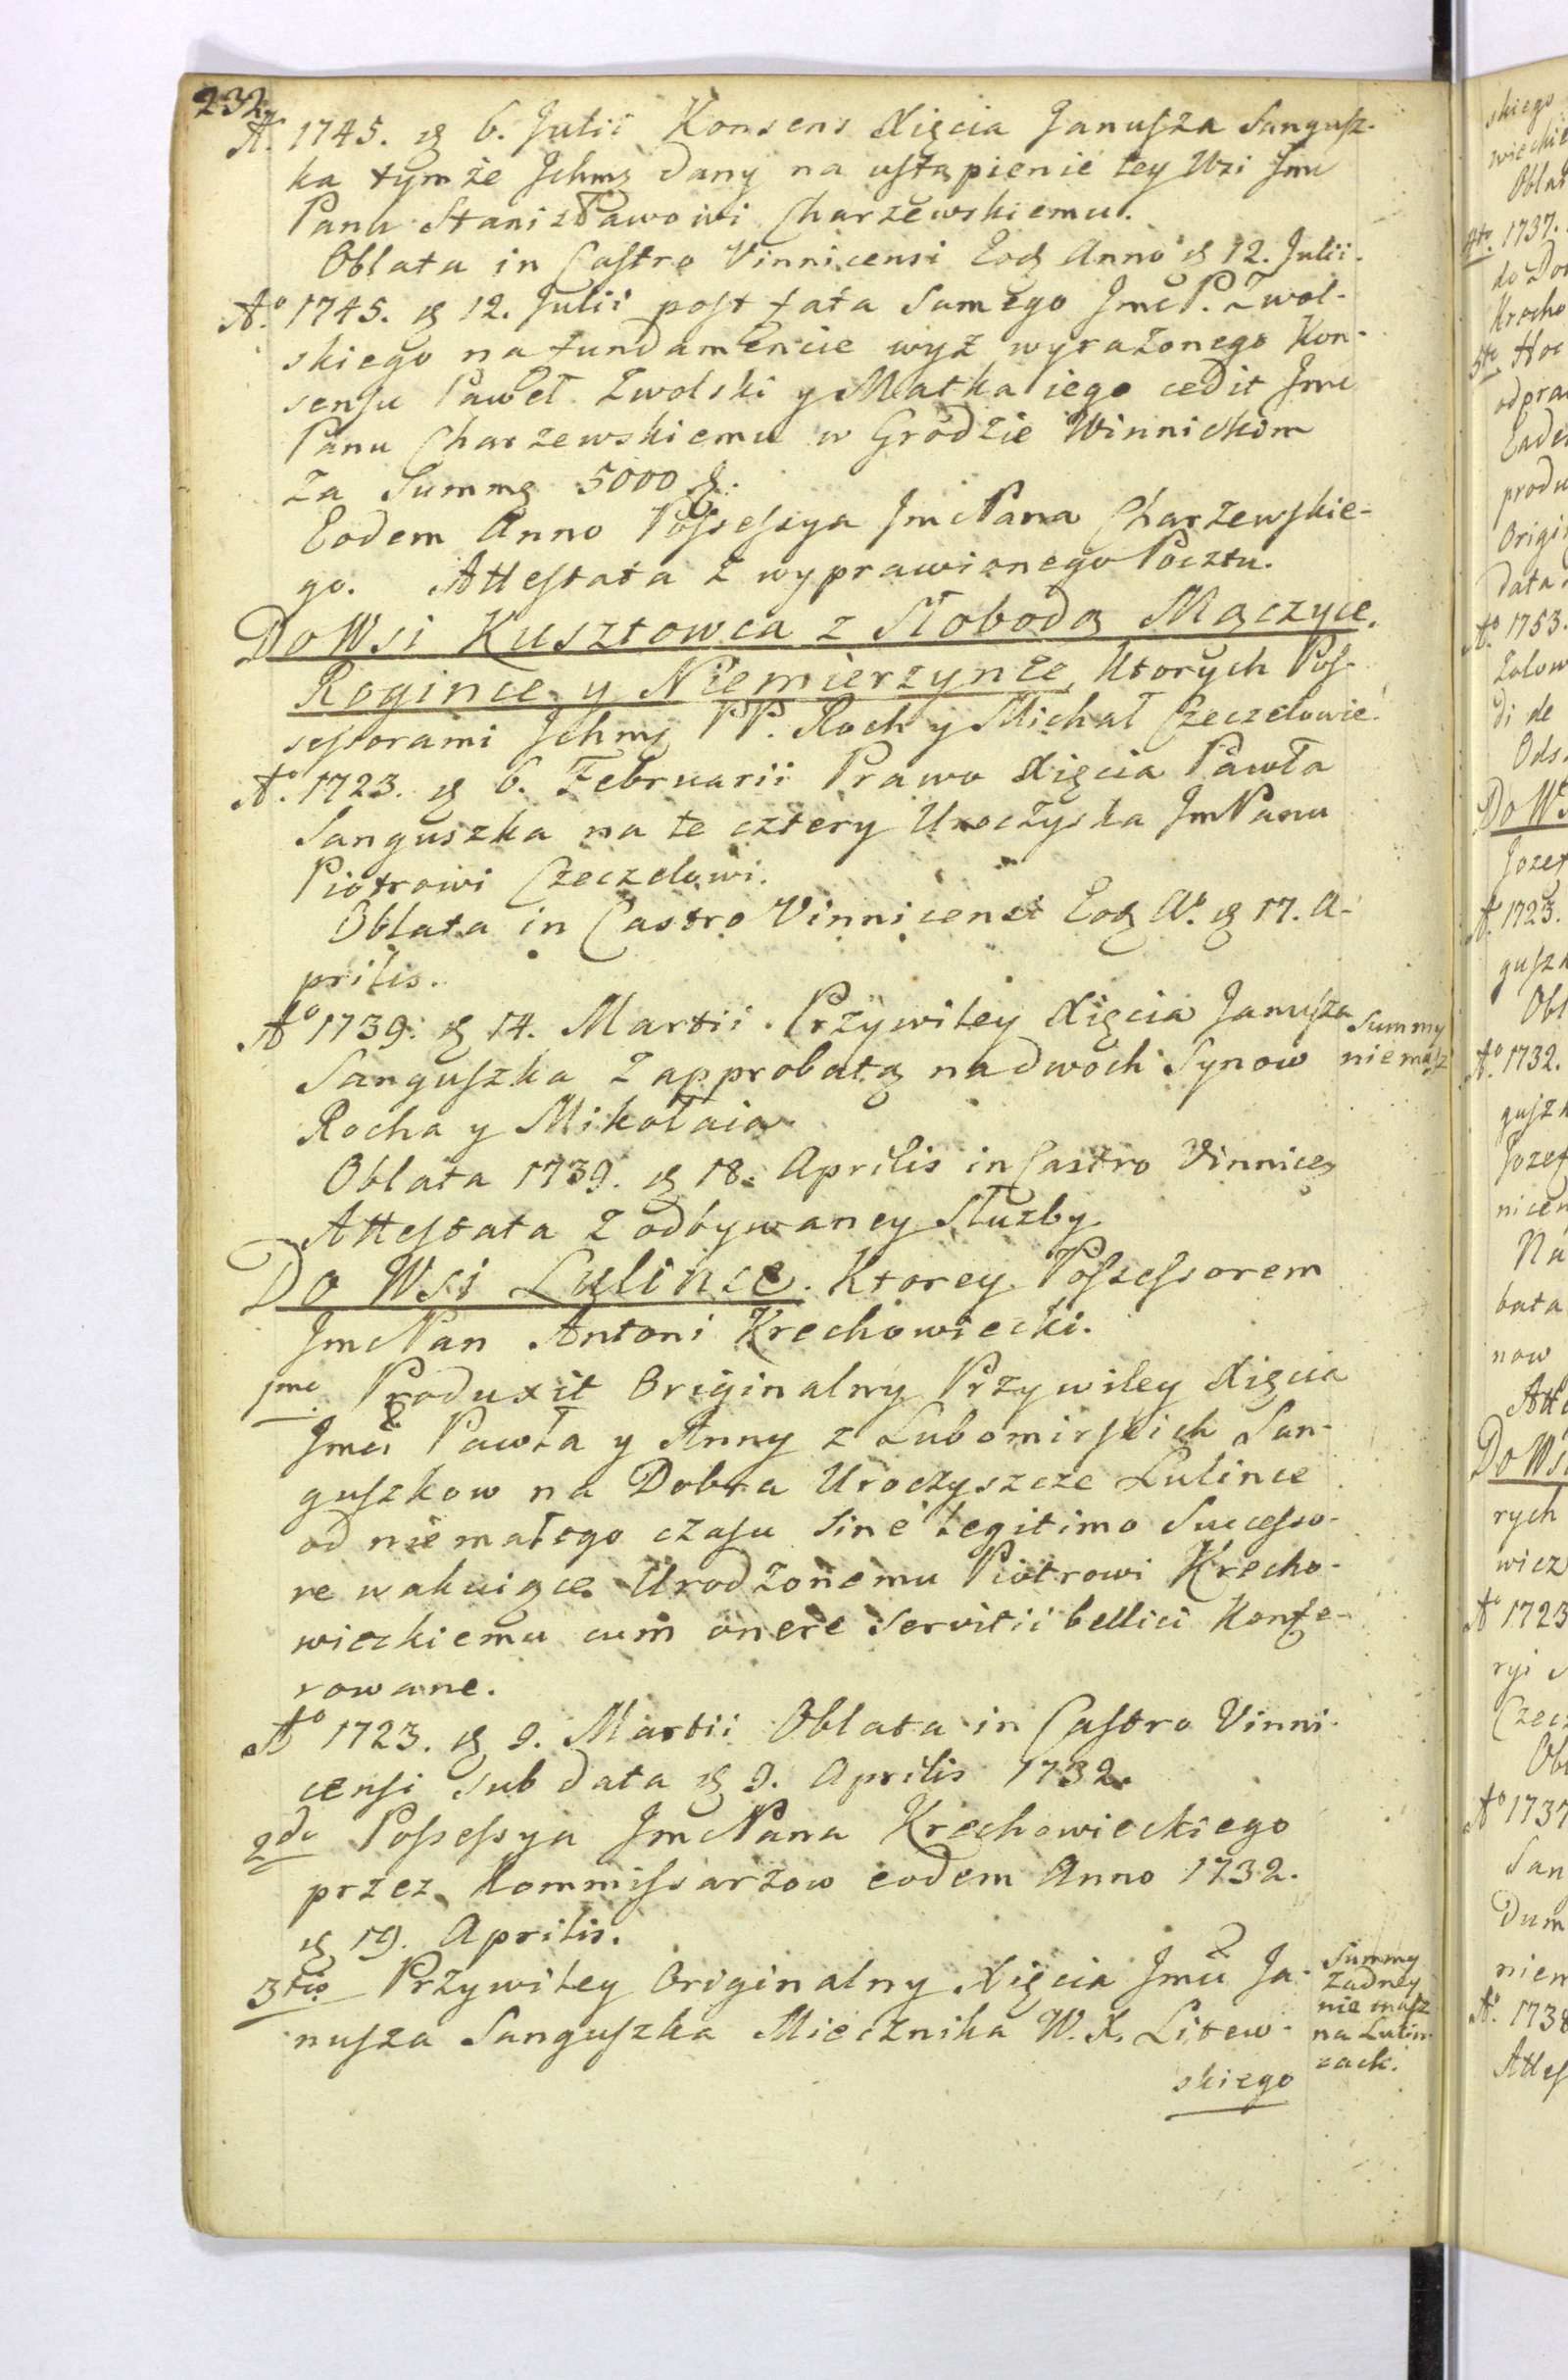 232.
A. 1745. d 6. Julii Konsens Xięcia Janusza Sangusz-
ka tymże Jchmę dany na ustąpienie tey Wsi Jmc
Panu Stanisławowi Charzewskiemu.
Oblata in Castro Vinnicensi Eod Anno d 12. Julii.
Aº. 1745. d 12. Julii post fata Samego Jmc P. Zwol-
skiego na fundamencie wyż wyrażonego Kon-
sensu Paweł Zwolski y Matka iego cedit Jmc
Panu Charzewskiemu w Grodzie Winnickim
za Summę 5000
Eodem Anno Possessya Jmc Pana Charzewskie-
go. Attestata z wyprawionego Pocztu.
Do Wsi Kusztowca z Słobodą Mączyce.
Rogince y Niemierzynce, Ktorych Pos-
sessorami Jchmę PP. Roch y Michał Czeczelowie.
Aº. 1723. d 6. Februarii Prawo Xięcia Pawła
Sanguszka na te cztery Uroczyska Jm Panu
Piotrowi Czeczelowi.
Oblata in Castro Vinnicensi Eod Aº. d 17. A-
prilis.
Aº 1739. d 14. Martii. Przywiley Xięcia Janusza
Sanguszka z approbatą na dwoch Synow
Rocha y Mikołaia.
Summy
nie masz
Oblata 1739. d 18. Aprilis in Castro Vinnice
Attestata z odbywaney Służby
Do Wsi Lulince. Ktorey Possessorem
Jmc Pan Antoni Krechowiecki.
1mo Produxit Originalny Przywiley Xięcia
Jmci Pawła y Anny z Lubomirskich San-
guszkow na Dobra Uroczyszcze Lulince
od nie małego czasu Sine legitimo Successo-
re wakuiące Urodzonemu Piotrowi Krecho-
wieckiemu cum onere Servitii bellici Konfe-
rowane.
Aº 1723. d 9. Martii Oblata in Castro Vinni-
censi Sub data d 9. Aprilis 1732.
2do Possessya Jmc Pana Krechowieckiego
przez Kommissarzow eodem Anno 1732.
d 19. Aprilis.
3tio Przywiley Originalny Xięcia Jmci Ja-
nusza Sanguszka Miecznika W. X. Litew-
skiego
Summy
żadney
nie masz
na Lulin-
cach.